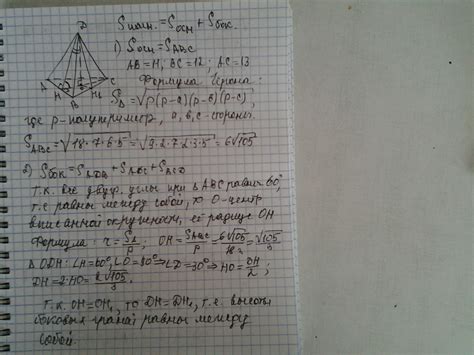 D
Sполн. = Sосн + Sбок.
1) Sосн = SABC
AB = 11; BC = 12; AC = 13
Формула Герона:
SΔ = √p(p-a)(p-b)(p-c),
где p-полупериметр, a, b, c-стороны
SABC = √18·7·6·5 = √9·2·7·2·3·5 = 6√105
2) Sбок = SADB + SBDC + SACD
Т.к. все двугр. углы при ΔABC равны 60°,
т.е равны между собой, то O-центр
вписанной окружности, её радиус OH
Формула: r = SΔ/p; OH = SABC/p = 6√105/18 = √105/3
ΔODH: ∠H = 60°, ∠O = 90° ⇒ ∠D = 30° ⇒ HO = DH/2;
DH = 2·HO = 2√105/3.
Т.к. OH = OH₁, то DH = DH₁, т.е. высоты
боковых граней равны между
собой.
A H B H₁ C